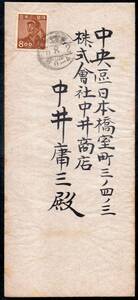 中央區日本橋室町三ノ四ノ三
株式會社中井商店
中井庸三殿
8.00